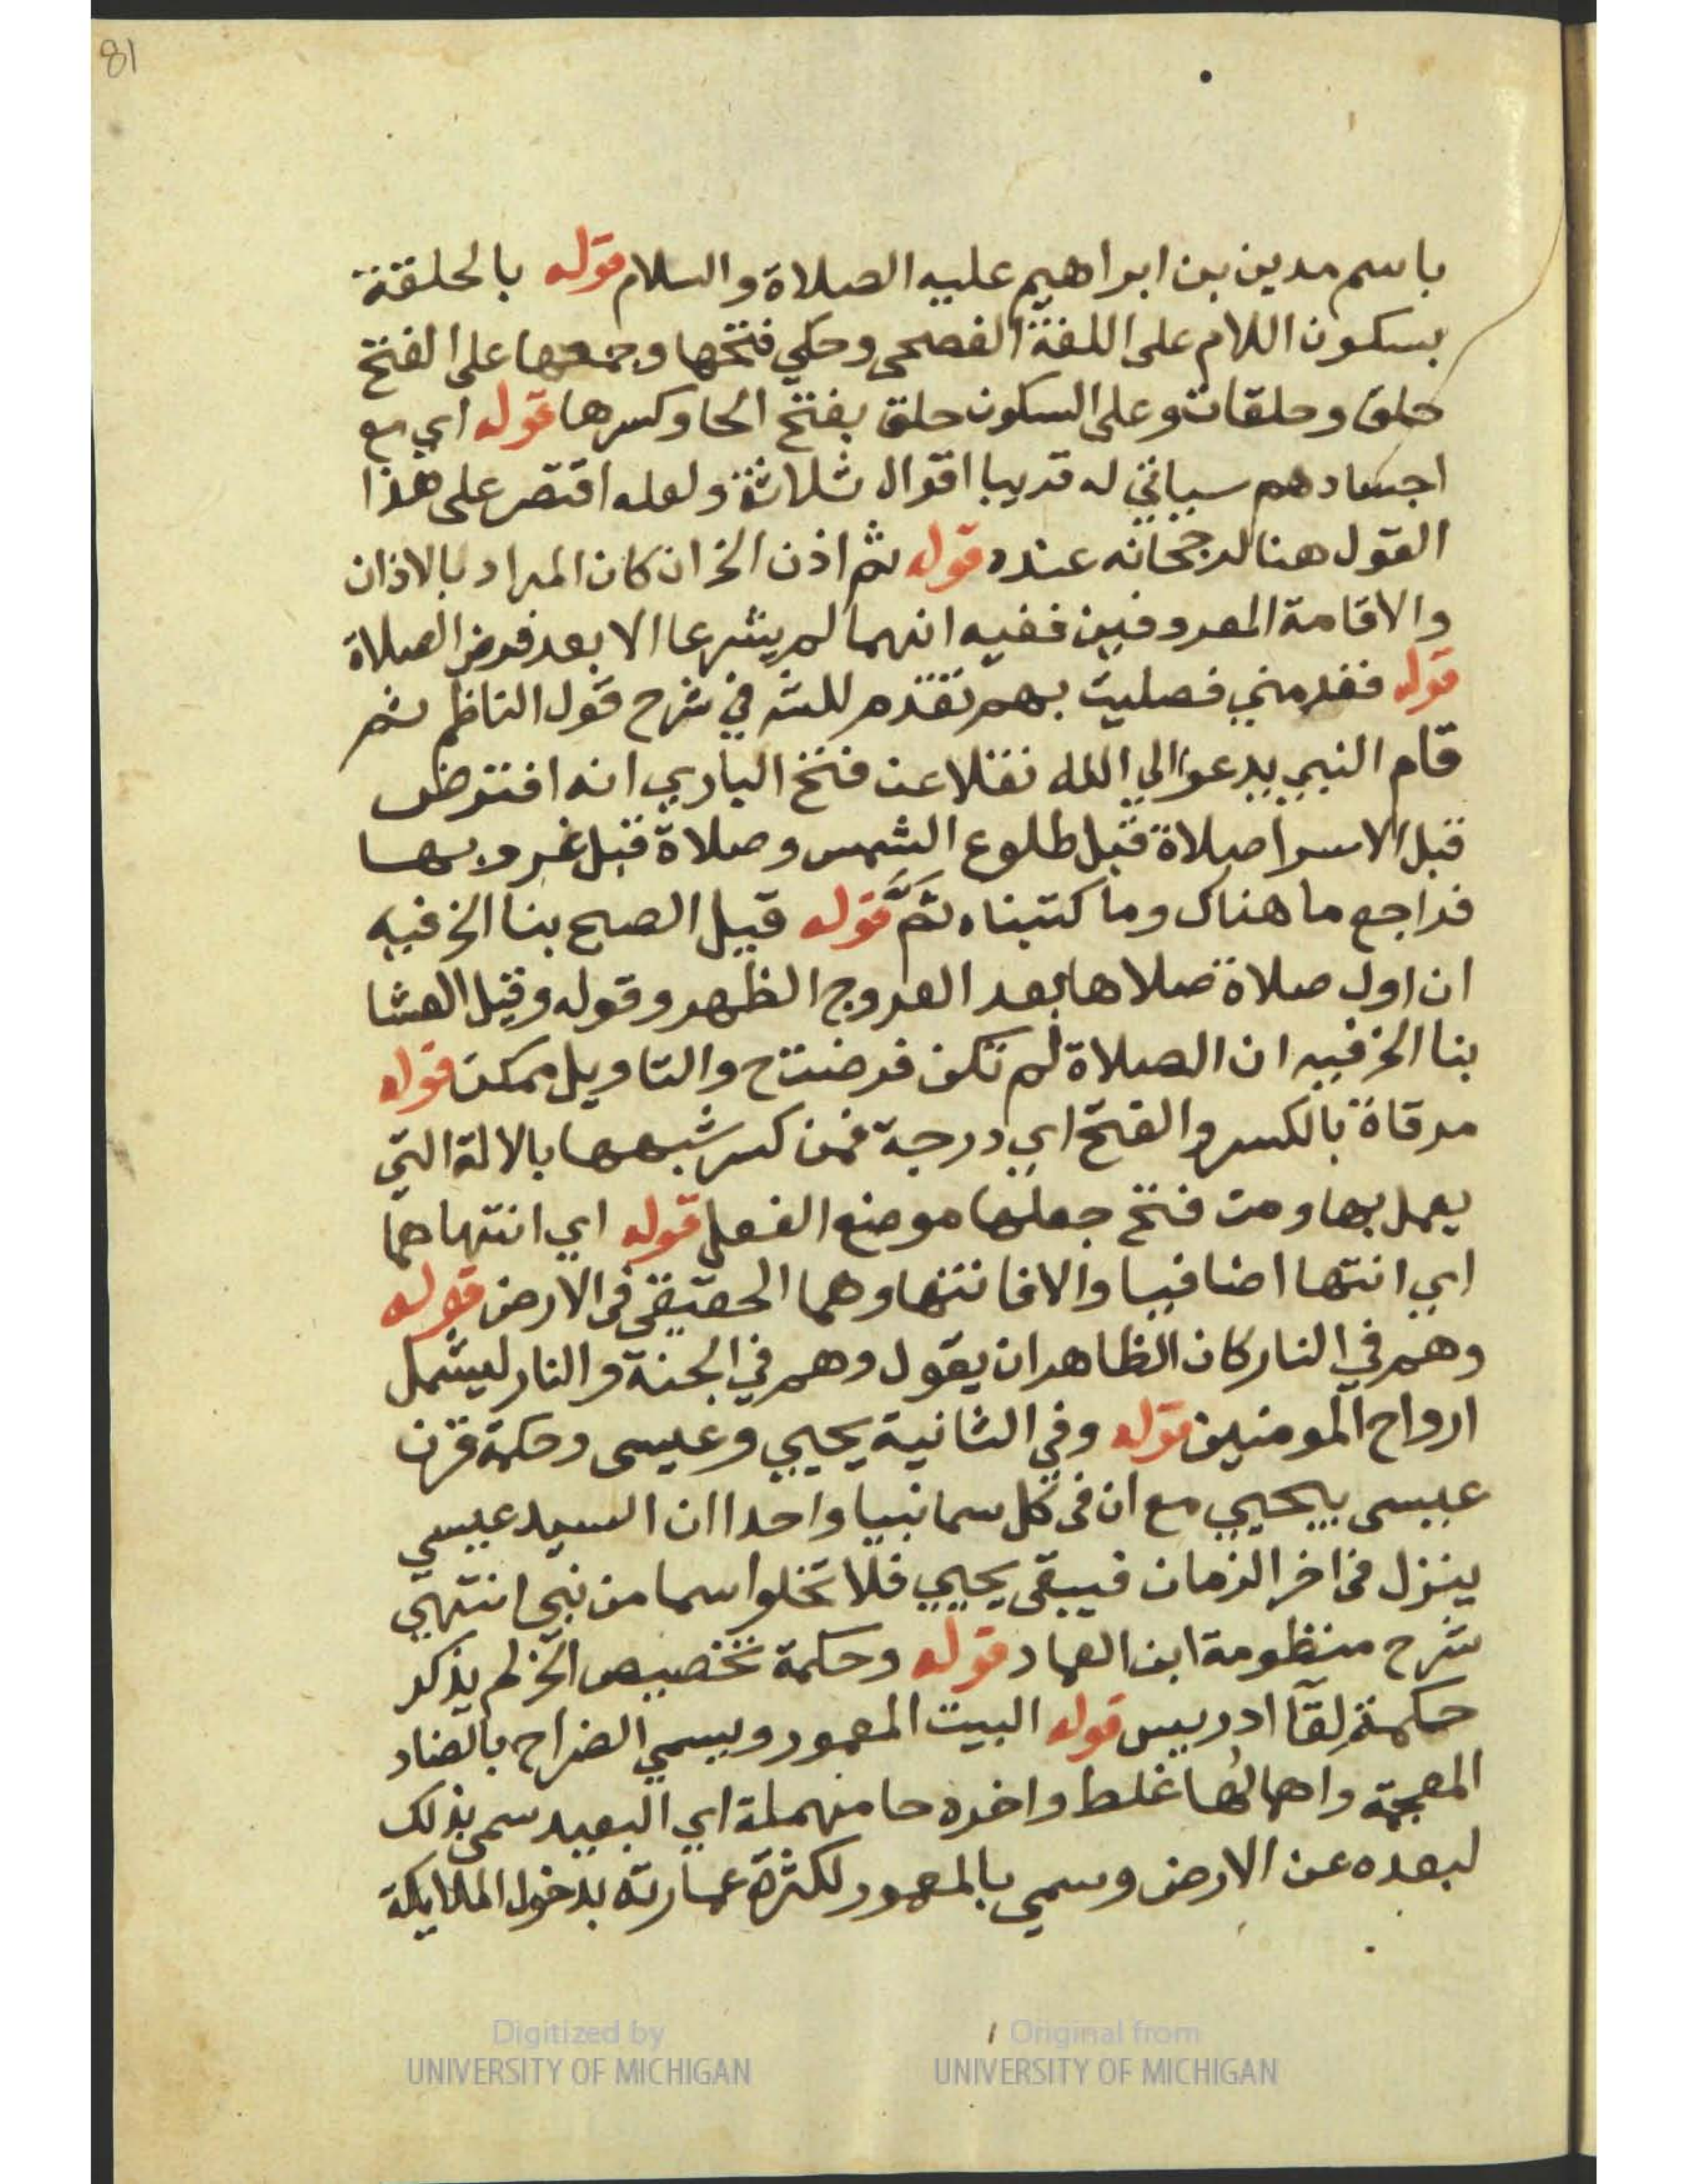 81
باسم مدين بن ابراهيم عليه الصلاة والسلام قوله بالحلقة
بسكون اللام على اللغة الفصحى وحكي فتحها وجمعها على الفتح
حلق وحلقات وعلى السكون حلق بفتح الحا وكسرها قوله اي مع
اجسادهم سياتي له قريبا اقوال ثلاثة ولعله اقتصر على هذا
القول هنا لرجحانه عنده قوله ثم اذن الخ ان كان المراد بالاذان
والاقامة المعروفين ففيه انهما لم يشرعا الا بعد فرض الصلاة
قوله فقدمني فصليت بهم تقدم للش في شرح قول الناظم ثم
قام النبي يدعوا الي الله نقلا عن فتح الباري انه افترض
قبل الاسرا صلاة قبل طلوع الشمس وصلاة قبل غروبها
فراجع ما هناك وما كتبناه ثَمَّ قوله قبيل الصبح بنا الخ فيه
ان اول صلاة صلاها بعد العروج الظهر وقوله وقبل العشا
بنا الخ فيه ان الصلاة لم تكن فرضت ح والتاويل ممكن قوله
مرقاة بالكسر والفتح اي درجة فمن كسر شبهها بالالة التي
يعمل بها ومن فتح جعلها موضع الفعل قوله اي انتهاهما
اي انتها اضافيا والا فانتهاوهما الحقيقي في الارض قوله
وهم في النار كان الظاهر ان يقول وهم في الجنة والنار ليشمل
ارواح المومنين قوله وفي الثانية يحيي وعيسى وحكمة قرن
عيسى بيحيي مع ان في كل سما نبيا واحدا ان السيد عيسي
ينزل في اخر الزمان فيبقى يحيي فلا تخلوا سما من نبي انتهي
شرح منظومة ابن العماد قوله وحكمة تخصيص الخ لم يذكر
حكمة لقآ ادريس قوله البيت المعمور ويسمي الضراح بالضاد
المعجمة واهمالها غلط واخره حا مهملة اي البعيد سمى بذلك
لبعده عن الارض وسمي بالمعمور لكثرة عمارته بدخول الملايكة
Digitized by
UNIVERSITY OF MICHIGAN
Original from
UNIVERSITY OF MICHIGAN